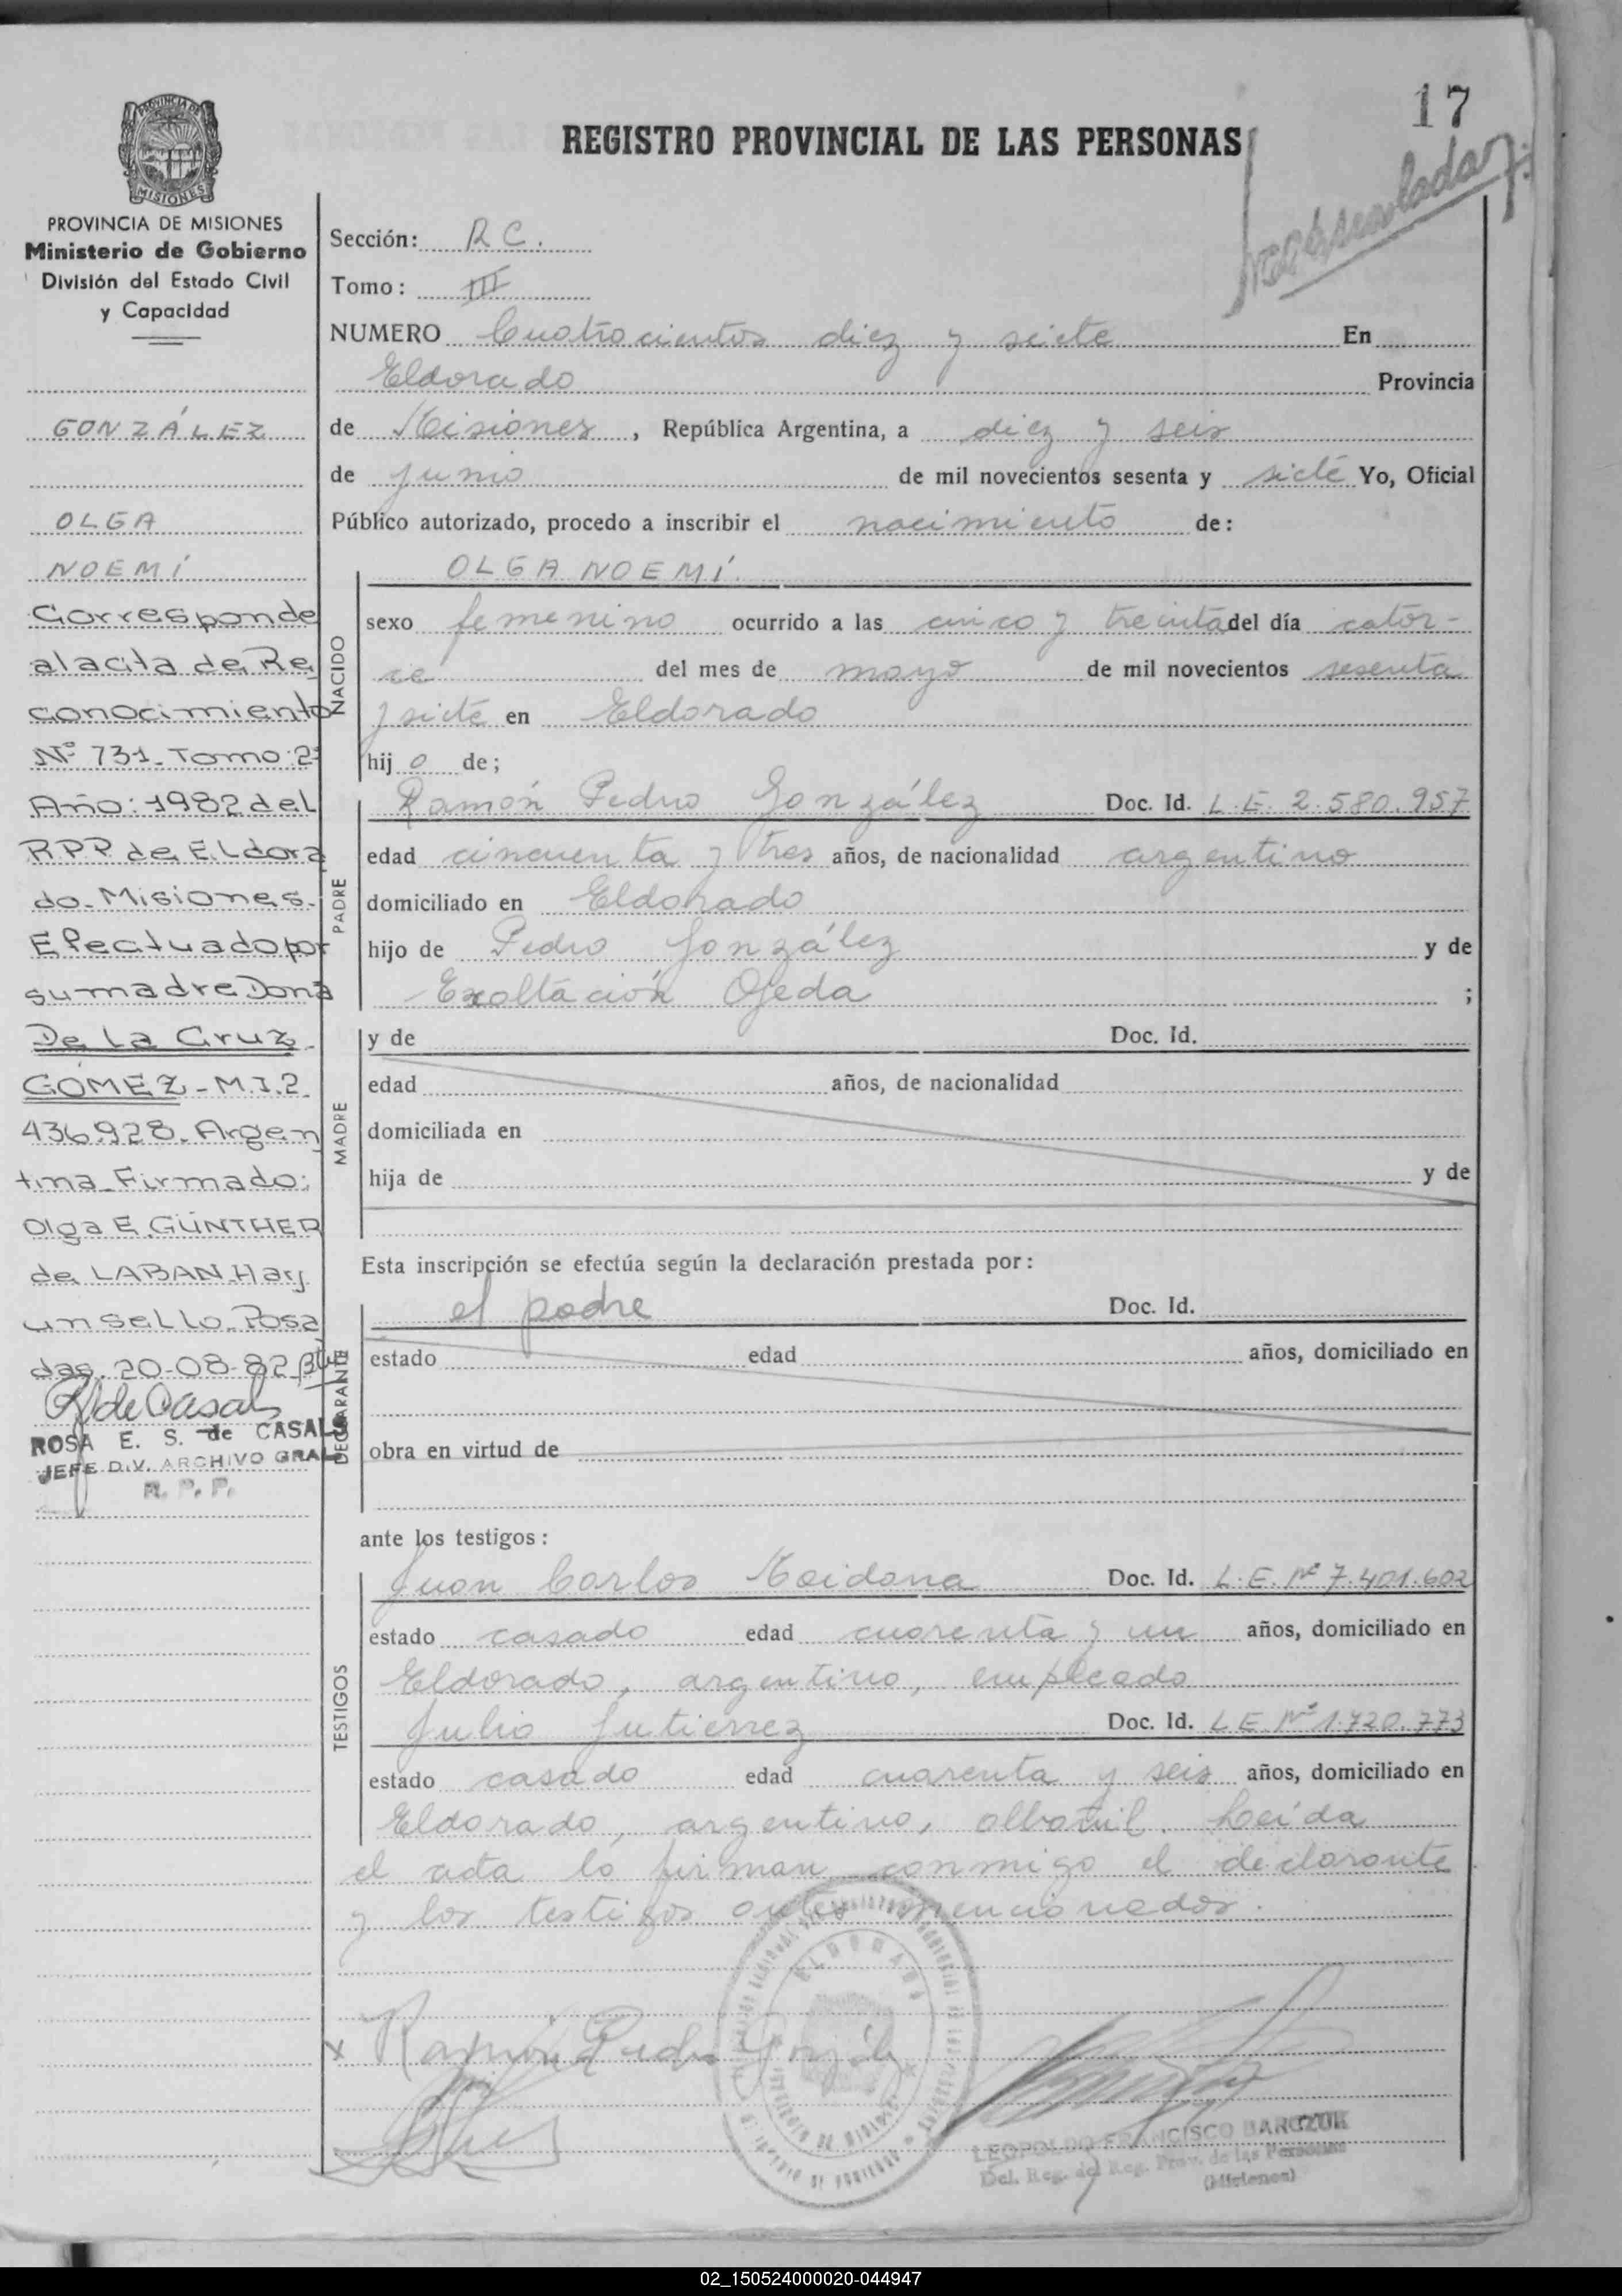 17
REGISTRO PROVINCIAL DE LAS PERSONAS
PROVINCIA DE MISIONES
MISIONES
PROVINCIA DE MISIONES
Ministerio de Gobierno
División del Estado Civil
y Capacidad
GONZÁLEZ
OLGA
NOEMÍ
Corresponde
a la cita de Re
conocimiento
Nº 731 - Tomo 2º
Año: 1982 del
RPP de Eldora
do - Misiones.
Efectuado por
su madre Dona
De La Cruz
GÓMEZ - M.I. 2.
436.928. Argen
tina Firmado:
Olga E. GÜNTHER
de LABAN Hay
un sello. Posa
das. 20-08-82
R de Casals
ROSA E. S. de CASALS
JEFE DIV. ARCHIVO GRAL
R. P. P.
Sección: R C.
Tomo: III
NUMERO Cuatrocientos diez y siete En
Eldorado Provincia
de Misiones, República Argentina, a diez y seis
de junio de mil novecientos sesenta y siete Yo, Oficial
Público autorizado, procedo a inscribir el nacimiento de:
NACIDO
OLGA NOEMÍ.
sexo femenino ocurrido a las cinco y treinta del día cator-
ce del mes de mayo de mil novecientos sesenta
y siete en Eldorado
hij o de;
PADRE
Ramón Pedro González Doc. Id. L.E. 2.580.957
edad cincuenta y tres años, de nacionalidad argentino
domiciliado en Eldorado
hijo de Pedro González y de
Exaltación Ojeda ;
MADRE
y de Doc. Id.
edad años, de nacionalidad
domiciliada en
hija de y de
Esta inscripción se efectúa según la declaración prestada por:
DECLARANTE
el padre Doc. Id.
estado edad años, domiciliado en
obra en virtud de
ante los testigos:
TESTIGOS
Juan Carlos Maidana Doc. Id. L.E. Nº 7.401.602
estado casado edad cuarenta y un años, domiciliado en
Eldorado, argentino, empleado
Julio Gutierrez Doc. Id. L.E. Nº 1.720.773
estado casado edad cuarenta y seis años, domiciliado en
Eldorado, argentino, albañil. Leída
el acta la firman conmigo el declarante
y los testigos antes mencionados.
ELDORADO
x Ramón Pedro González
LEOPOLDO FRANCISCO BARCZUK
Del. Reg. del Reg. Prov. de las Personas
(Misiones)
02_150524000020-044947